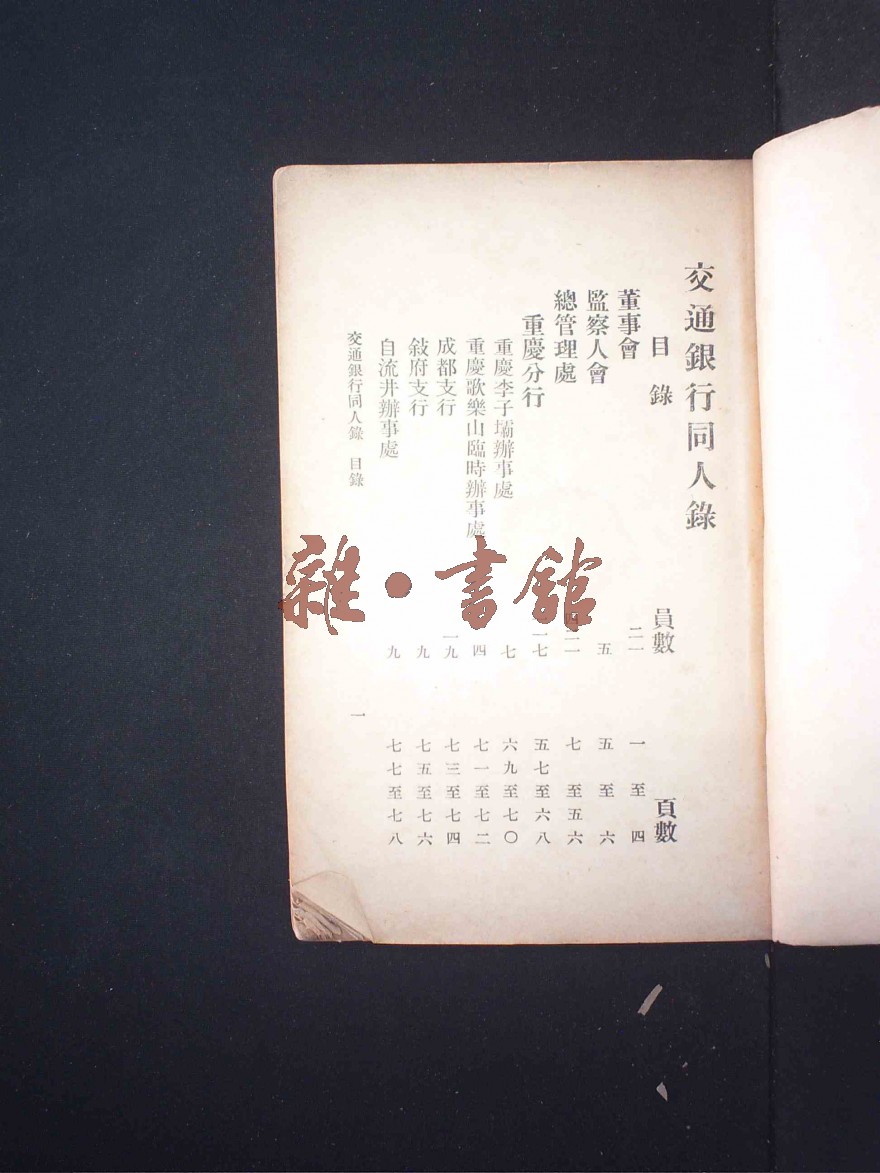 交通銀行同人錄
目錄 員數 頁數
董事會 二一 一至四
監察人會 五 五至六
總管理處 七至五六
重慶分行 五七至六八
重慶李子壩辦事處 七 六九至七〇
重慶歌樂山臨時辦事處 四 七一至七二
成都支行 一九 七三至七四
敍府支行 九 七五至七六
自流井辦事處 九 七七至七八
交通銀行同人錄 目錄 一
雜·書館